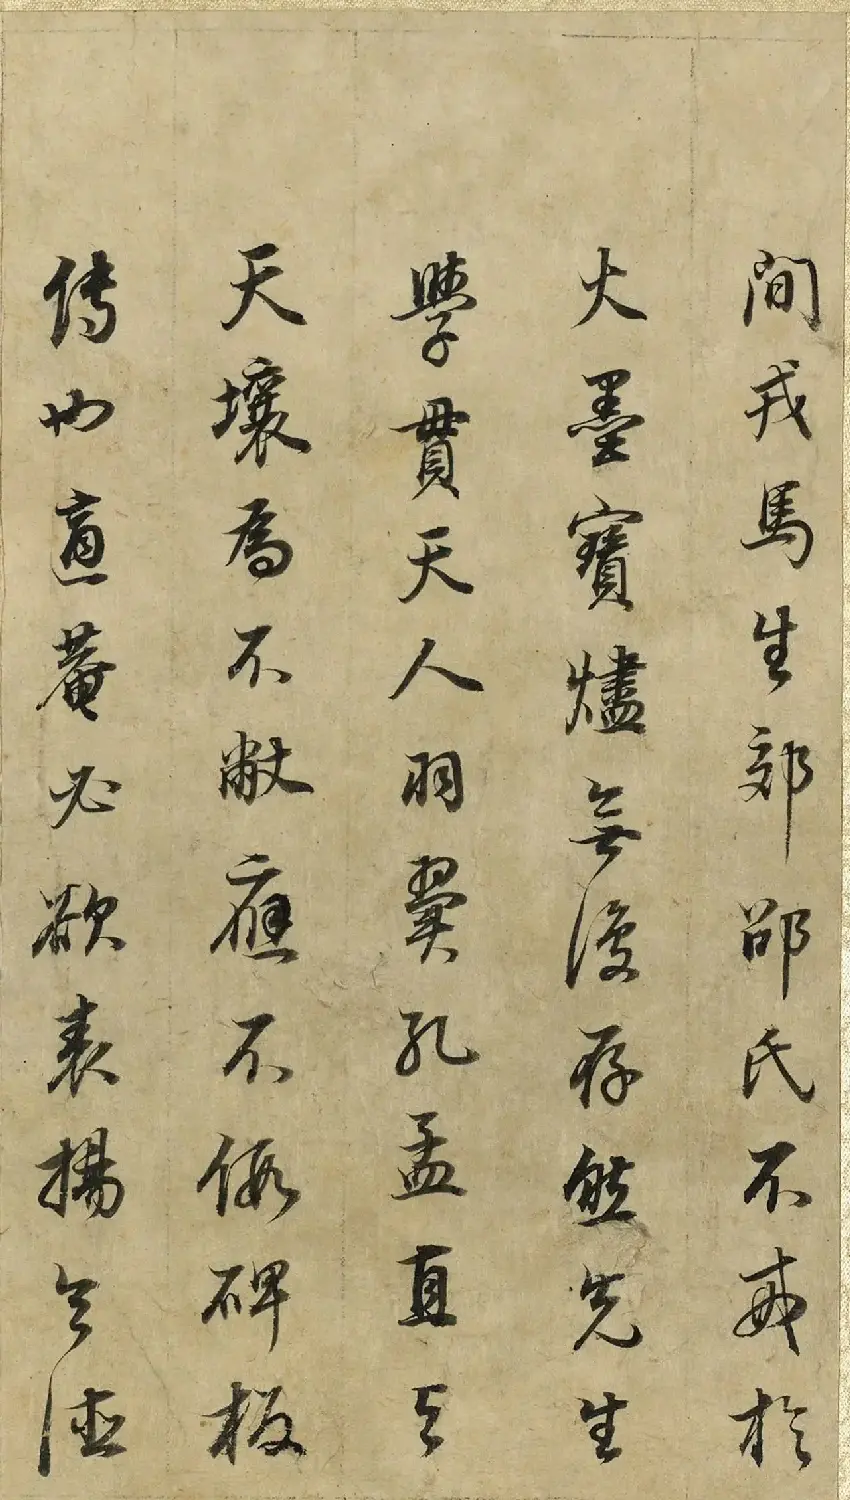 間戎馬生郊邵氏不戒於
火墨寶燼無復存然先生
學貫天人羽翼孔孟直與
天壤為不敝應不假碑板
傳也適菴必欲表揚令德